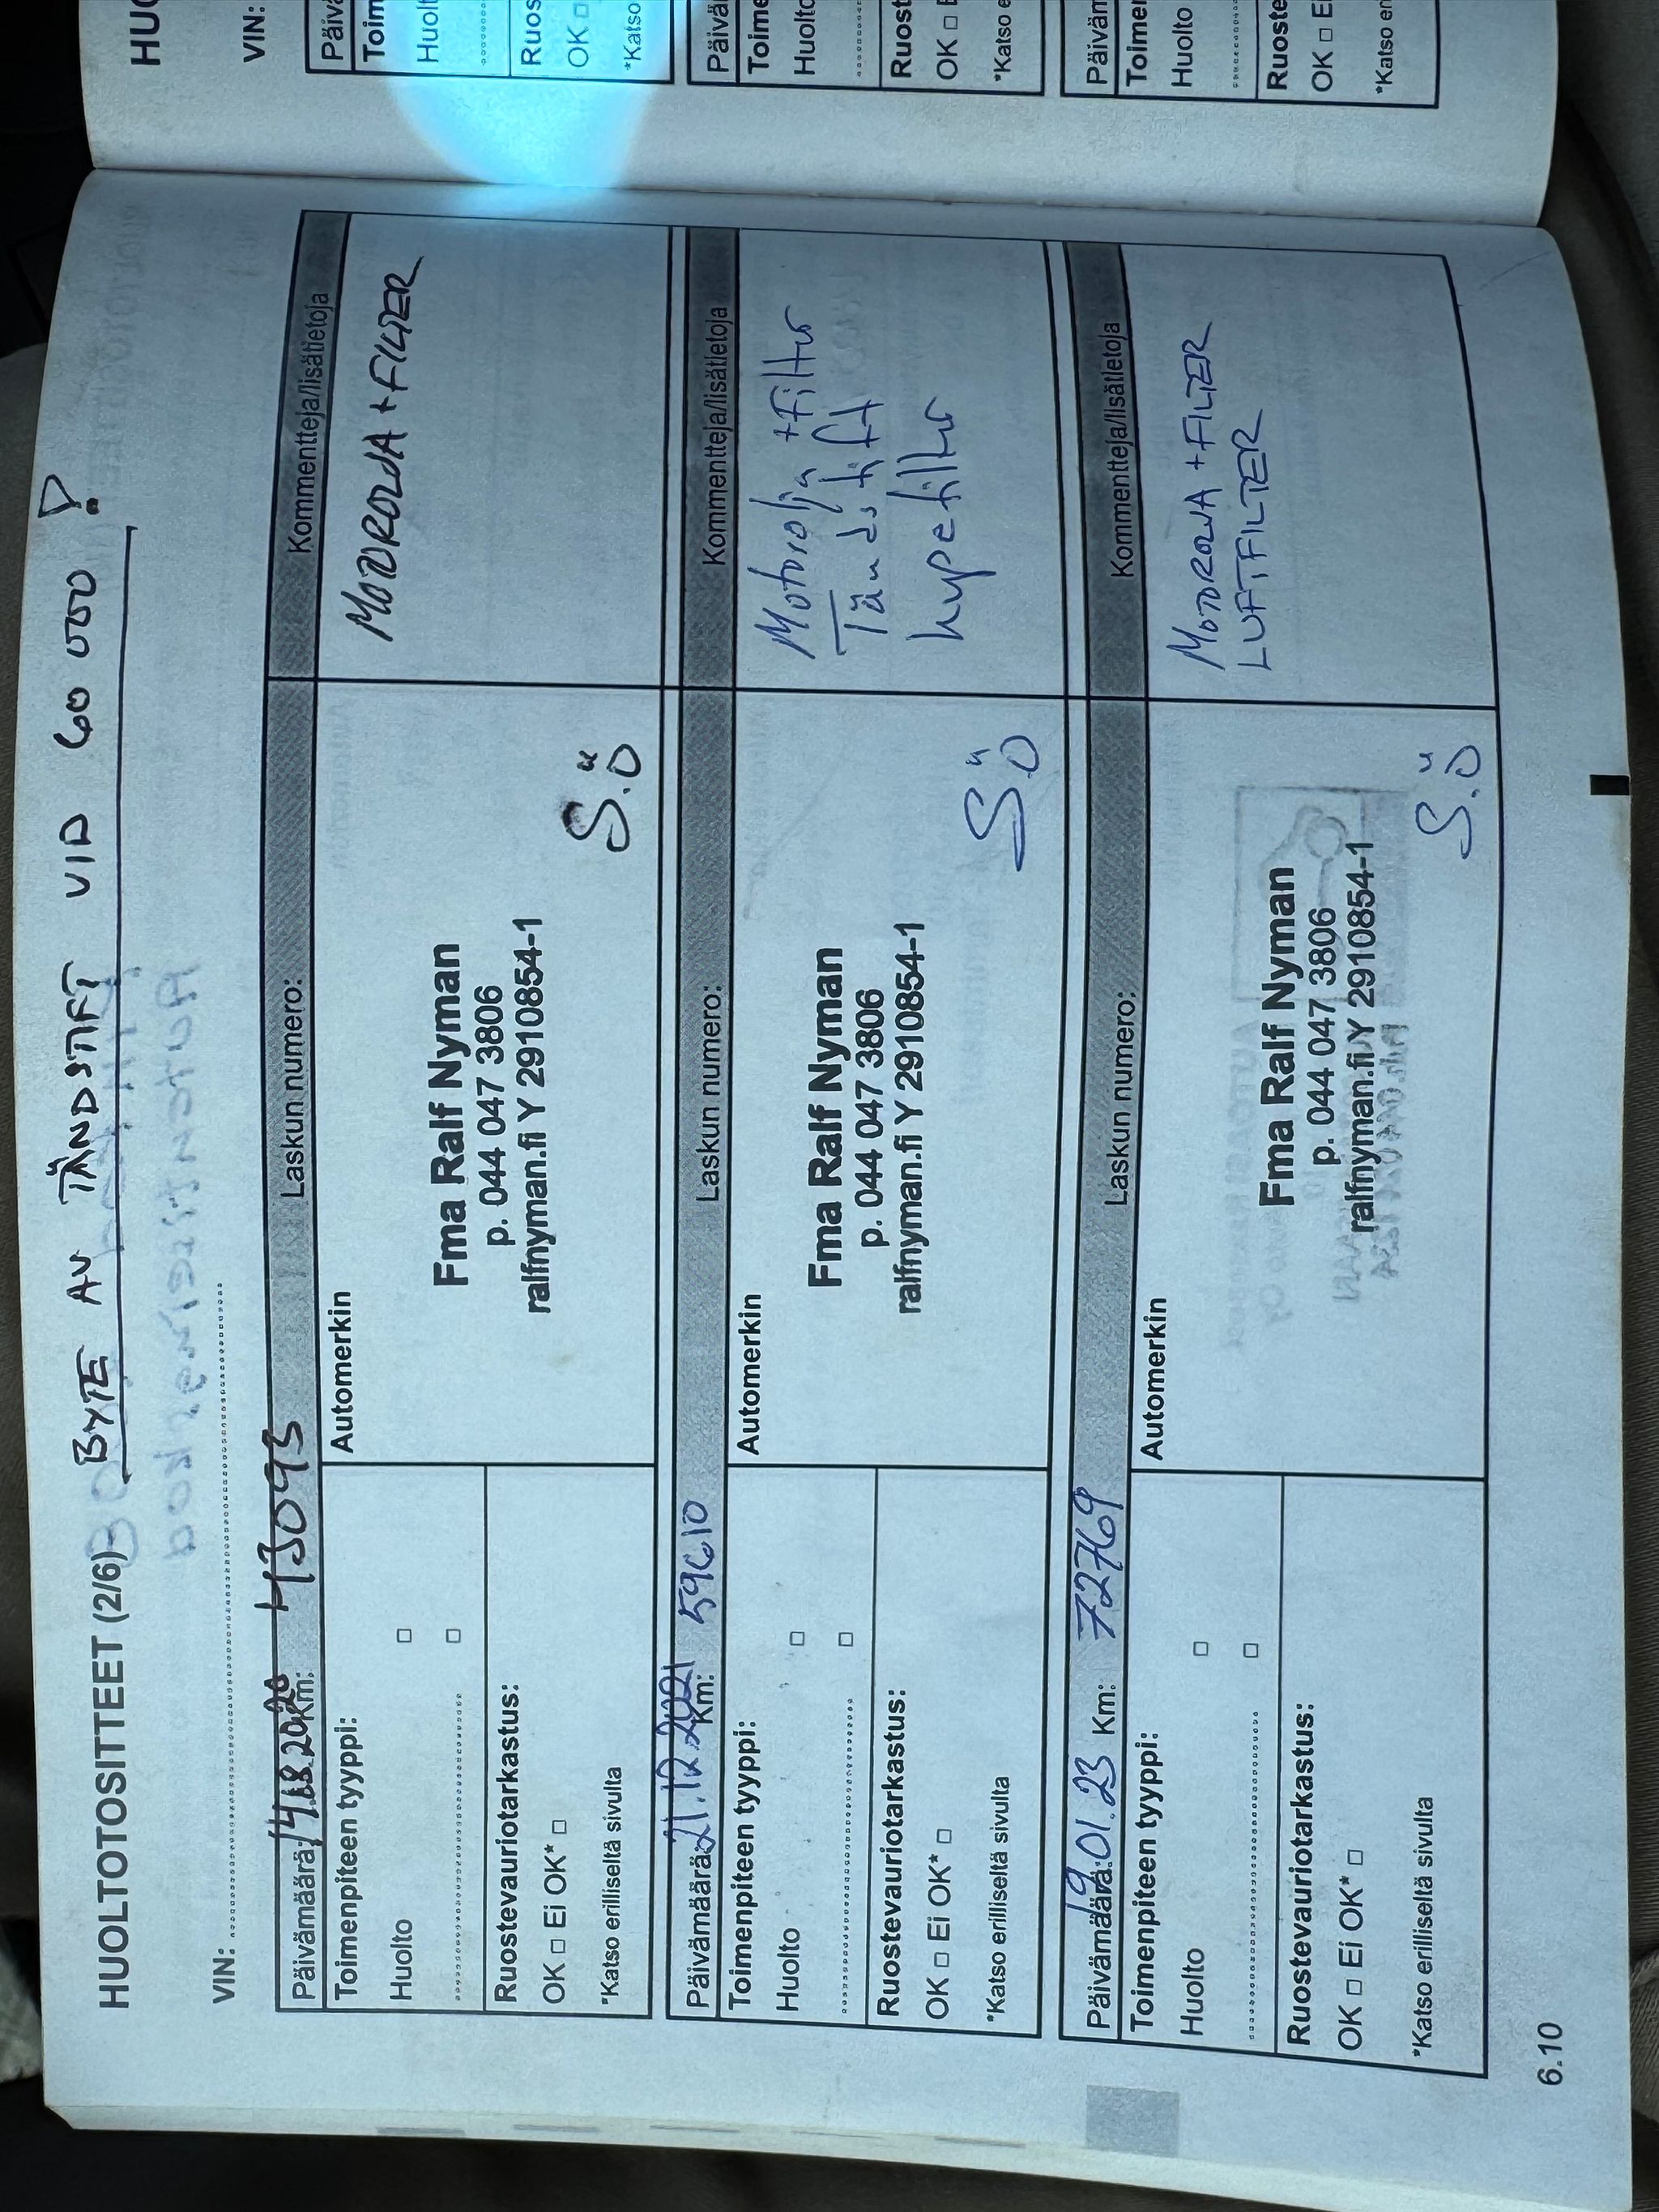 HUOLTOTOSITTEET (2/6)
BYTE AV TÄNDSTIFT VID 60 000 !
VIN:
Päivämäärä: 14.8.2020 Km: 43093 Laskun numero: Kommentteja/lisätietoja
Toimenpiteen tyyppi:
Huolto □
□
Ruostevauriotarkastus:
OK □ Ei OK* □
*Katso erilliseltä sivulta
Automerkin
Fma Ralf Nyman
p. 044 047 3806
ralfnyman.fi Y 2910854-1
S.Ö
MOTOROLJA + FILTER
Päivämäärä: 21.12.2021 Km: 59610 Laskun numero: Kommentteja/lisätietoja
Toimenpiteen tyyppi:
Huolto □
□
Ruostevauriotarkastus:
OK □ Ei OK* □
*Katso erilliseltä sivulta
Automerkin
Fma Ralf Nyman
p. 044 047 3806
ralfnyman.fi Y 2910854-1
S.Ö
Motorolja + Filter
Tändstift
Päivämäärä: 19.01.23 Km: 72769 Laskun numero: Kommentteja/lisätietoja
Toimenpiteen tyyppi:
Huolto □
□
Ruostevauriotarkastus:
OK □ Ei OK* □
*Katso erilliseltä sivulta
Automerkin
Fma Ralf Nyman
p. 044 047 3806
ralfnyman.fi Y 2910854-1
S.Ö
MOTOROLJA + FILTER
LUFTFILTER
6.10
HUO
VIN:
Päivä
Toim
Huolt
Ruos
OK □
*Katso
Päiväm
Toime
Huolto
Ruost
OK □ E
*Katso e
Päiväm
Toimer
Huolto
Ruoste
OK □ Ei
*Katso en